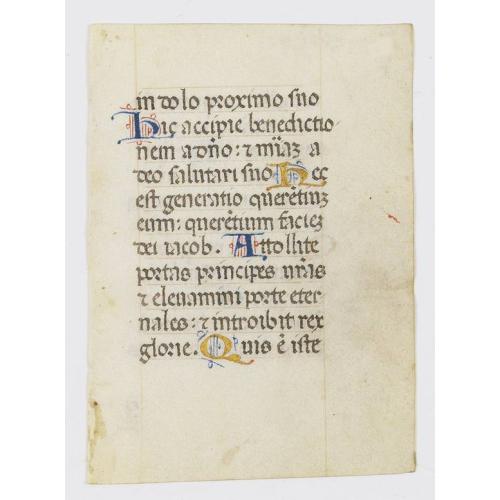 in dolo proximo suo
Hic accipiẽ benedictio
nem a dño: ⁊ mĩaȝ a
deo salutari suo Hec
est generatio querẽtiuȝ
eum: querẽtium facieȝ
dei iacob. Attollite
portas principes vr̃as
⁊ eleuamini porte eter
nales: ⁊ introibit rex
glorie. Quis ẽ iste